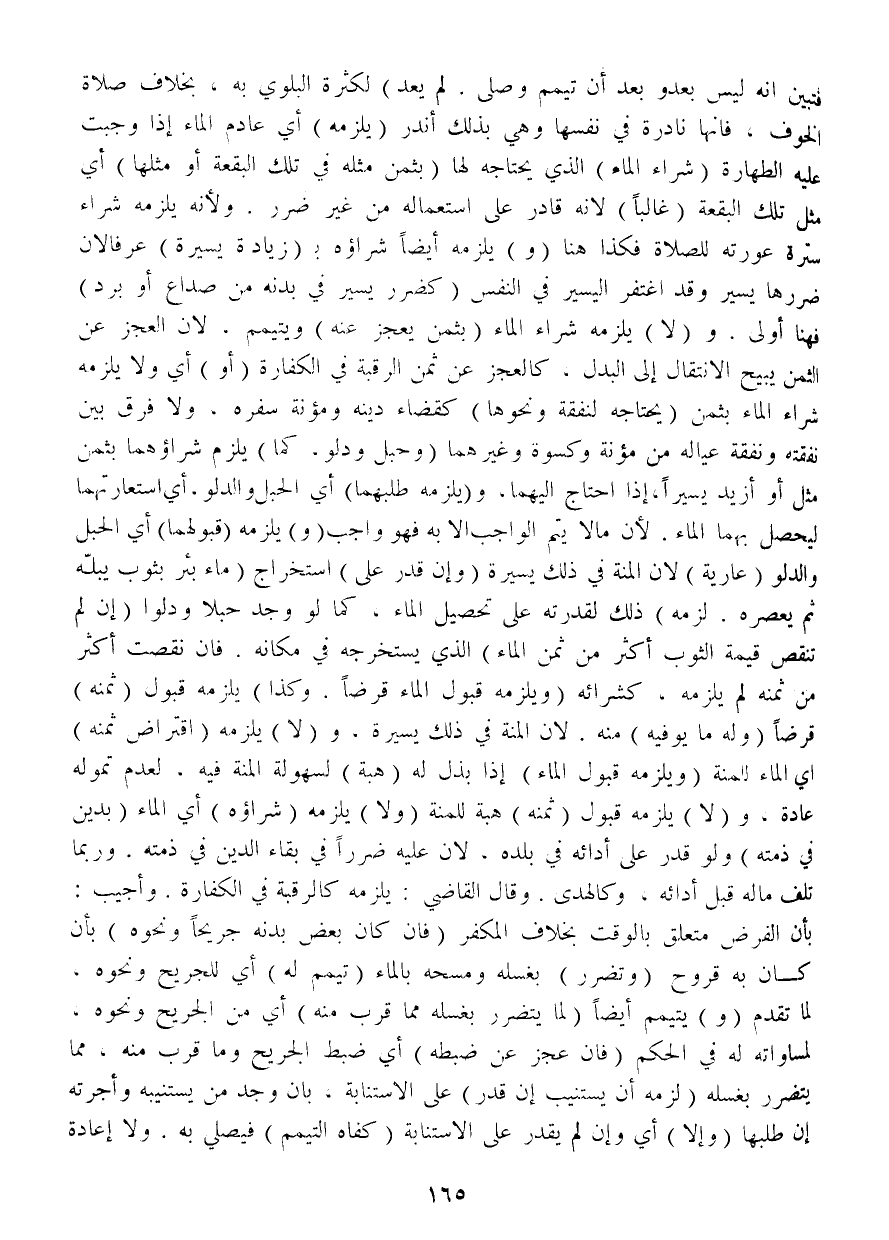 فتبين انه ليس بعدو بعد أن تيمم وصلى . لم يعد ) لكثرة البلوي به ، بخلاف صلاة
الخوف ، فانها نادرة في نفسها وهي بذلك أندر ( يلزمه ) أي عادم الماء إذا وجبت
عليه الطهارة ( شراء الماء ) الذي يحتاجه لها ( بثمن مثله في تلك البقعة أو مثلها ) أي
مثل تلك البقعة ( غالباً ) لانه قادر على استعماله من غير ضرر . ولأنه يلزمه شراء
سترة عورته للصلاة فكذا هنا ( و ) يلزمه أيضاً شراؤه بـ ( زيادة يسيرة ) عرفالان
ضررها يسير وقد اغتفر اليسير في النفس ( كضرر يسير في بدنه من صداع أو برد )
فهنا أولى . و ( لا ) يلزمه شراء الماء ( بثمن يعجز عنه ) ويتيمم . لان العجز عن
الثمن يبيح الانتقال إلى البدل ، كالعجز عن ثمن الرقبة في الكفارة ( أو ) أي ولا يلزمه
شراء الماء بثمن ( يحتاجه لنفقة ونحوها ) كقضاء دينه ومؤنة سفره . ولا فرق بين
نفقته ونفقة عياله من مؤنة وكسوة وغيرهما ( وحبل ودلو. كما ) يلزم شراؤهما بثمن
مثل أو أزيد يسيراً،إذا احتاج اليهما. و(يلزمه طلبهما) أي الحبل والدلو.أي استعارتهما
ليحصل بهما الماء . لأن مالا يتم الواجب الا به فهو واجب( و) يلزمه (قبولهما) أي الحبل
والدلو ( عارية ) لان المنة في ذلك يسيرة ( وإن قدر على ) استخراج ( ماء بئر بثوب يبلّه
ثم يعصره . لزمه ) ذلك لقدرته على تحصيل الماء ، كما لو وجد حبلا ودلوا ( إن لم
تنقص قيمة الثوب أكثر من ثمن الماء ) الذي يستخرجه في مكانه . فان نقصت أكثر
من ثمنه لم يلزمه ، كشرائه ( ويلزمه قبول الماء قرضاً . وكذا ) يلزمه قبول ( ثمنه )
قرضاً ( وله ما يوفيه ) منه . لان المنة في ذلك يسيرة . و ( لا ) يلزمه ( اقتراض ثمنه )
اي الماء للمنة ( ويلزمه قبول الماء ) إذا بذل له ( هبة ) لسهولة المنة فيه . لعدم تموله
عادة . و ( لا ) يلزمه قبول ( ثمنه ) هبة للمنة ( ولا ) يلزمه ( شراؤه ) أي الماء ( بدين
في ذمته ) ولو قدر على أدائه في بلده . لان عليه ضرراً في بقاء الدين في ذمته . وربما
تلف ماله قبل أدائه ، وكالهدى . وقال القاضي : يلزمه كالرقبة في الكفارة . وأجيب :
بأن الفرض متعلق بالوقت بخلاف المكفر ( فان كان بعض بدنه جريحاً ونحوه ) بأن
كـــان به قروح ( وتضرر ) بغسله ومسحه بالماء ( تيمم له ) أي للجريح ونحوه .
لما تقدم ( و ) يتيمم أيضاً ( لما يتضرر بغسله مما قرب منه ) أي من الجريح ونحوه .
لمساواته له في الحكم ( فان عجز عن ضبطه ) أي ضبط الجريح وما قرب منه ، مما
يتضرر بغسله ( لزمه أن يستنيب إن قدر ) على الاستنابة ، بان وجد من يستنيبه وأجرته
إن طلبها ( وإلا ) أي وإن لم يقدر على الاستنابة ( كفاه التيمم ) فيصلي به . ولا إعادة
١٦٥